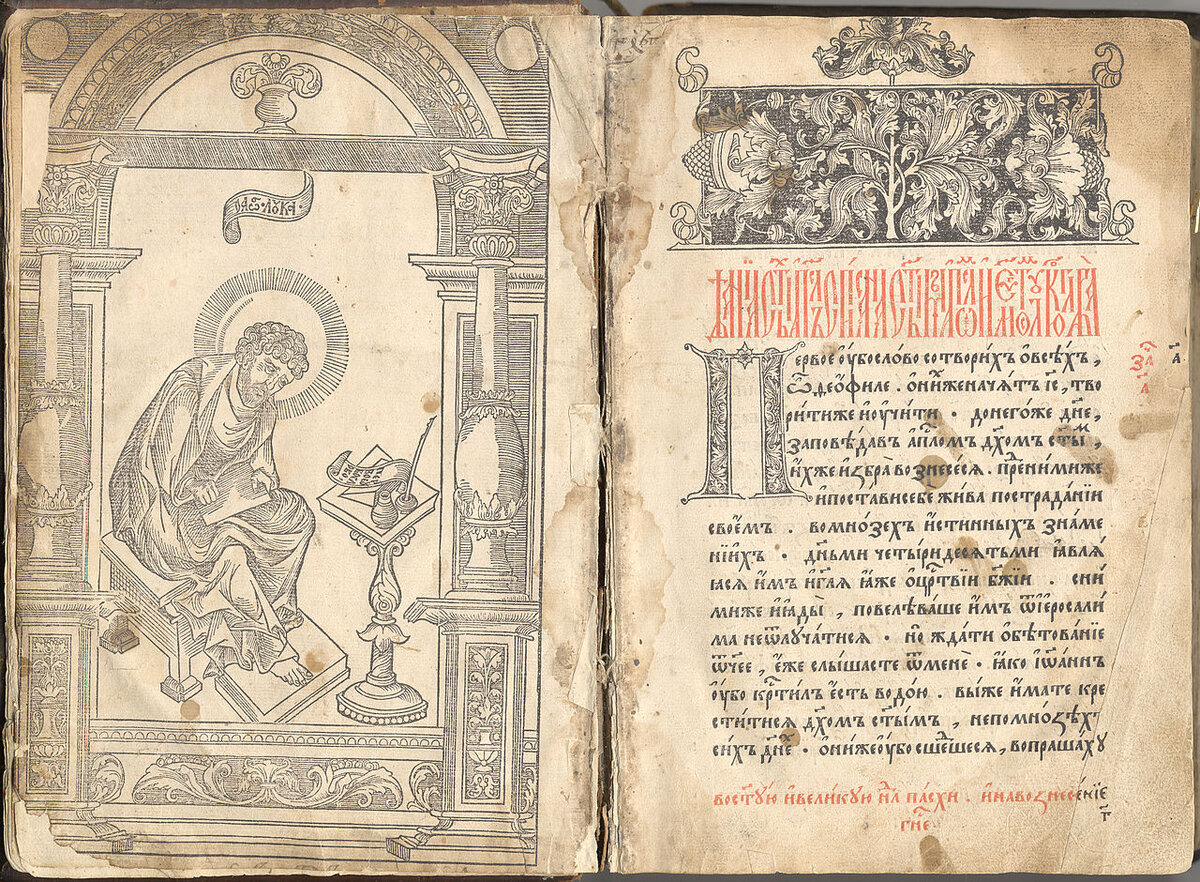 ЛꙋКА
Первое ᲂу҆бо слово сотворихъ ѡ҆ всѣхъ ,
ѽ ѳео҆філе . ѡ҆ ниже начатъ і҆с҃ , тво
рити же и҆ ᲂу҆чити · до него же дн҃е ,
заповѣдавъ а҆пⷭ҇лом дх҃ом ст҃ыⷨ ,
и҆хже и҆збра вознесесѧ . предⷣ ними же
и҆ постави себе жива по страданїи
своемъ . во мнозехъ и҆стинныхъ знаме
нїихъ · дн҃ьми четыридесѧтьми ꙗ҆влѧ
ѧсѧ и҆мъ и҆ гл҃ѧ ꙗ҆же ѡ҆ црⷭ҇твїи бж҃їи . с ни
миже и҆ ꙗ҆ды , повелѣваше и҆мъ ѿ і҆еросали
ма не ѿлꙋчатисѧ · но ждати ѡ҆бѣтованїе
ѿч҃ее , е҆же слышасте ѿ мене · ꙗ҆ко і҆ѡ҆аннъ
ᲂу҆бо крⷭ҇тилъ е҆сть водою . вы же и҆мате кре
ститисѧ дх҃омъ ст҃ымъ , не по мнозѣхъ
сихъ дн҃ехъ · ѡ҆ни же ᲂу҆бо сшедⷣшесѧ , вопрашахꙋ
в ст҃ꙋю и҆ великꙋю нⷣлю пасхи . и҆ на вознесенїе
гн҃е